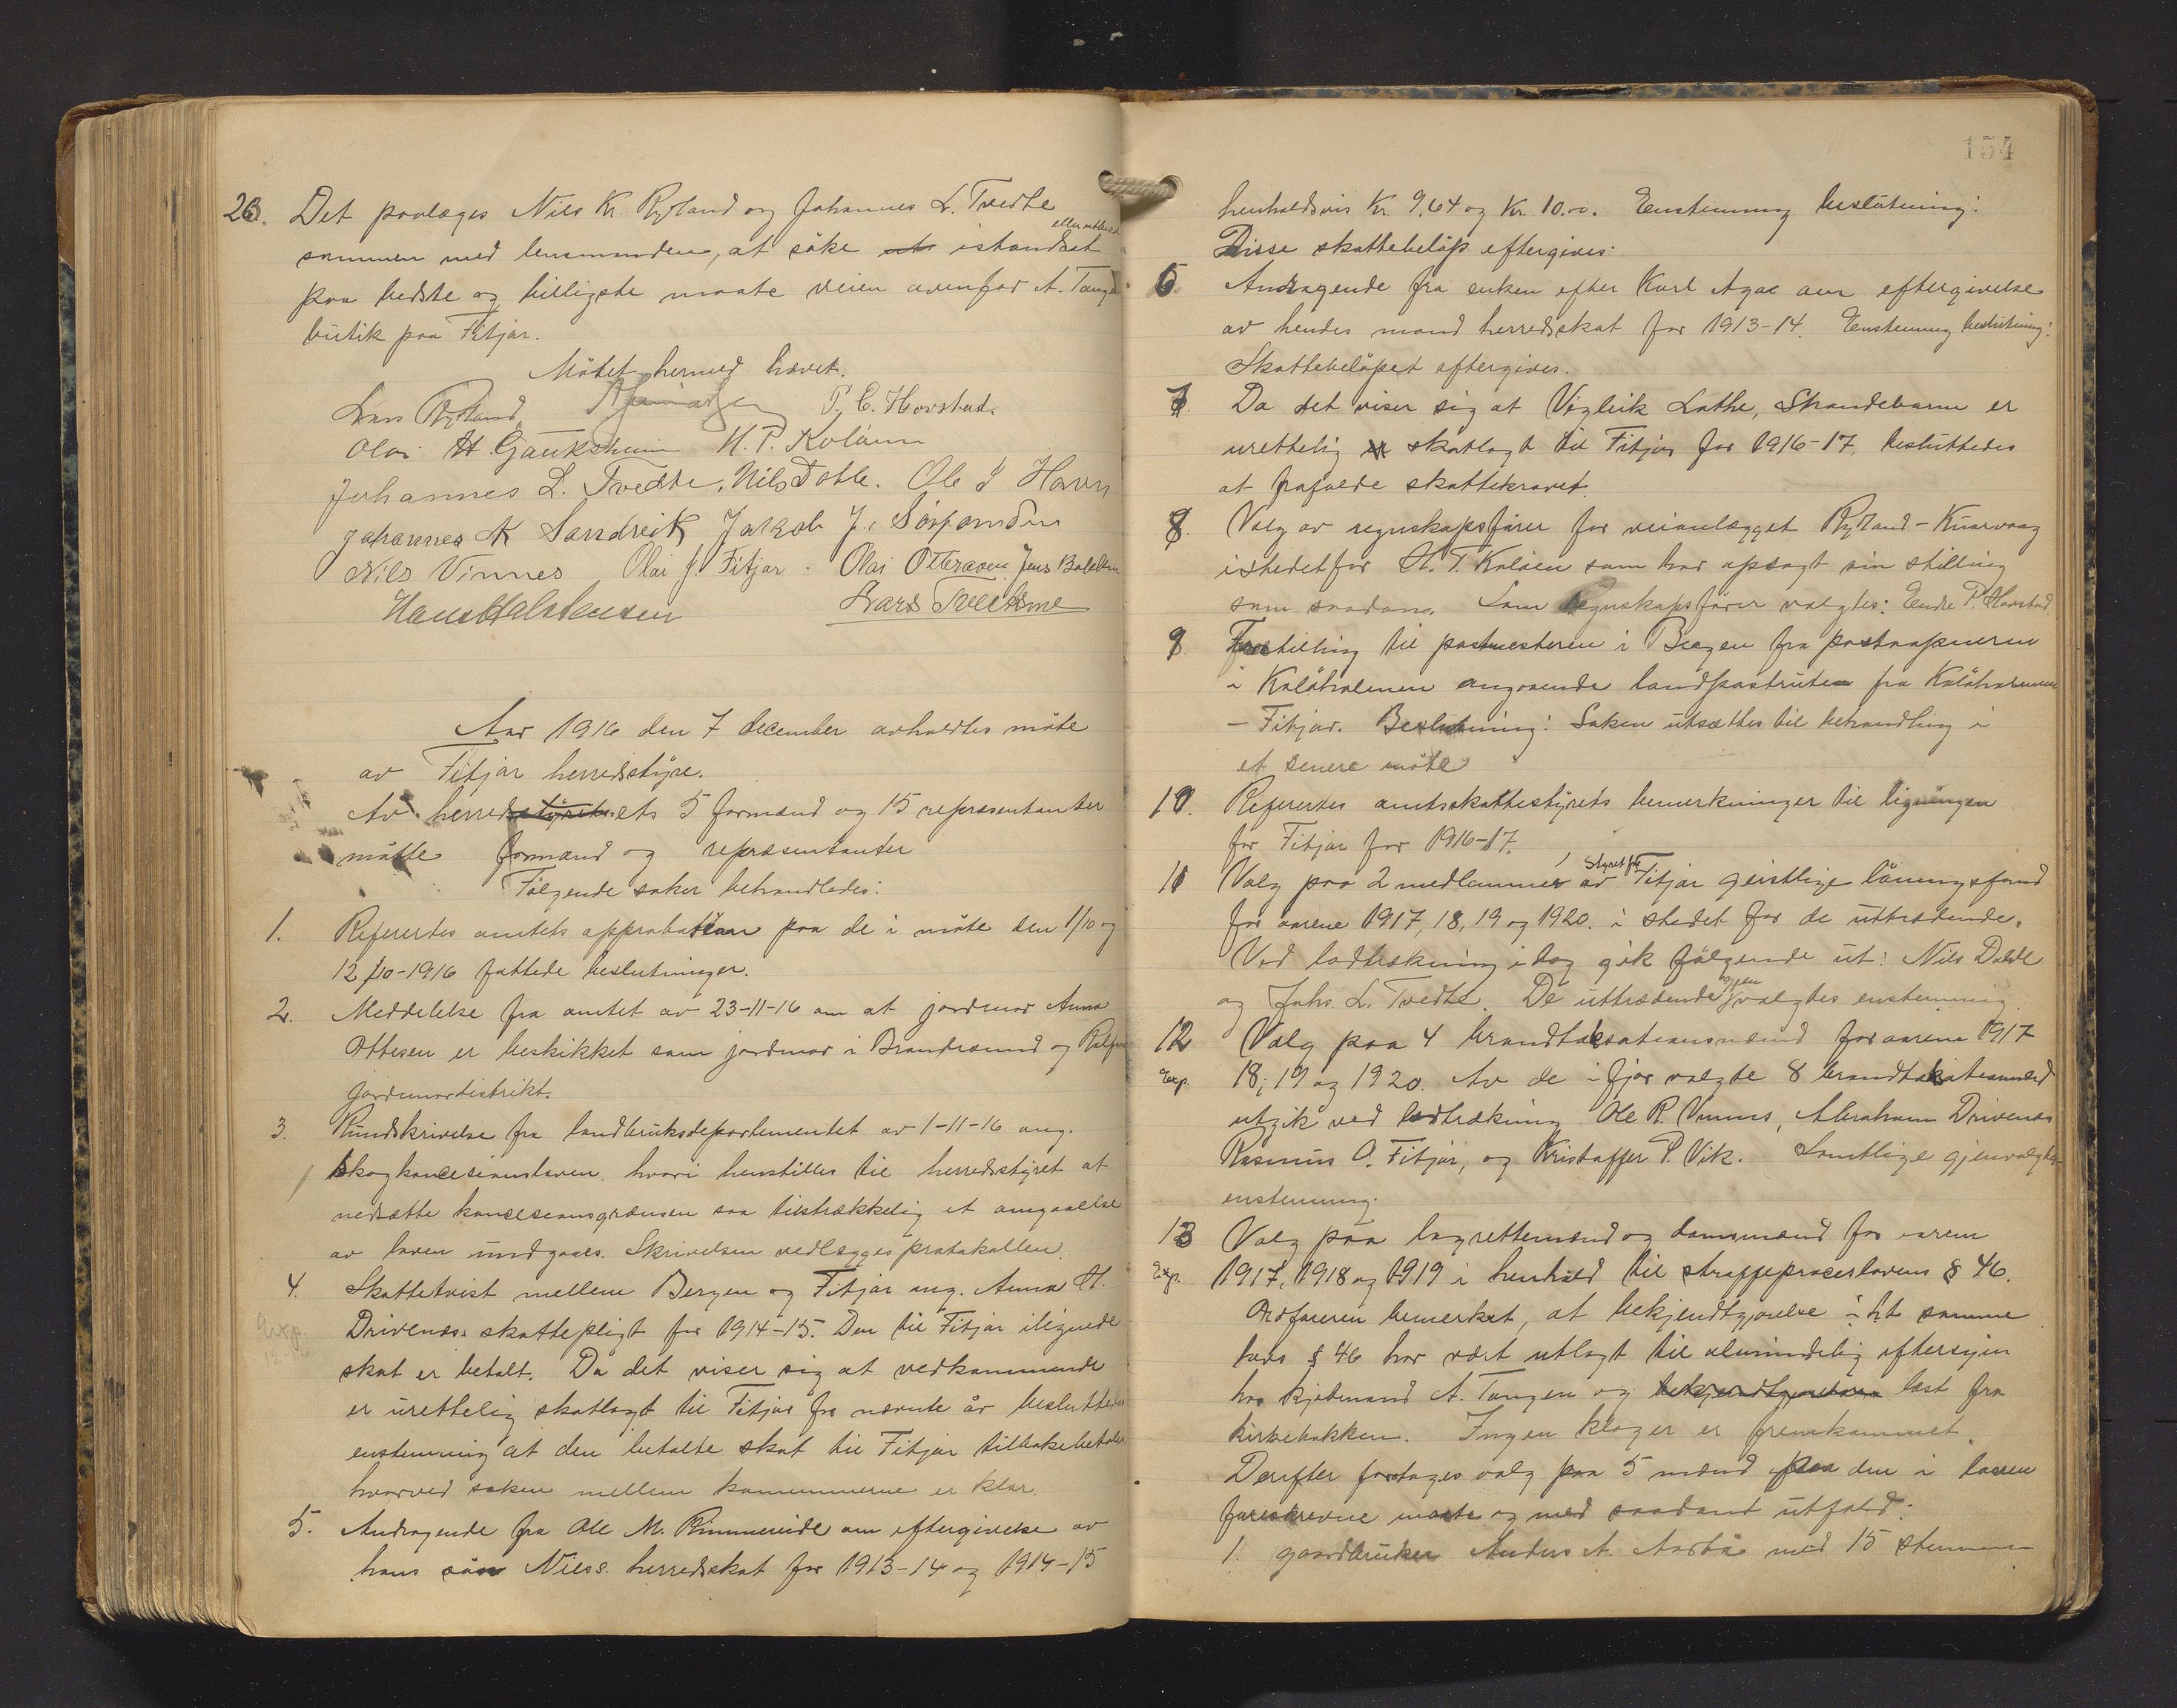 26. Det paalægges Nils Kr. Rydland og Johannes L. Tvedte
sammen med lensmanden, at söke istandsat
paa bedste og billigste maate veien ovenfor A. Tangen
butik paa Fitjar.
Mötet hermed hævet.
Lars Rydland P. C. Hovstad.
Olai H. Gauksheim H. T. Kolaien
Johannes L. Tvedte. Nils Dahle. Ole J Havn
Johannes K Sandvik Jakob J. Sörfonden
Nils Vinnes Olai J. Fitjar. Olai Otteraaen. Jens
Hans Halstensen Lars Tveitene
Aar 1916 den 7 december avholdtes möte
av Fitjar herredstyre.
Av herredstyrets 5 formænd og 15 repræsentanter
mötte formænd og repræsentanter
Fölgende saker behandledes:
1. Refertes amtets approbation paa de i möte den 1/10 og
12/10-1916 fattede beslutninger.
2. Meddelelse fra amtet av 23-11-16 om at jordmor Anna
Ottesen er beskikket som jordmor i Brandesund og
jordmordistrikt.
3. Rundskrivelse fra landbruksdepartementet av 1-11-16 ang.
skogkoncesionsloven, hvori henstilles til herredsstyret at
nedsætte koncesionsgrænsen saa tilstrækkelig at omgaaelse
av loven undgaaes. Skrivelsen vedlægges protokollen.
4. Skattetvist mellem Bergen og Fitjar ang. Anna H.
Exp.
Drivenæs skattepligt for 1914-15. Den til Fitjar ilignede
skat er betalt. Da det viser sig at vedkommende
er urettelig skatlagt til Fitjar for nævnte år besluttedes
enstemmig at den betalte skat til Fitjar tilbakebetales
hvorved saken mellem kommunerne er klar.
5. Andragende fra Ole M. Rimmereide om eftergivelse av
hans sön Nils's herredskat for 1913-14 og 1914-15
154
henholdsvis Kr. 9,64 og Kr. 10.00. Enstemmig beslutning:
Disse skattebelöp eftergives.
6 Andragende fra enken efter Karl Agae om eftergivelse
av hendes mand herredsskat for 1913-14. Enstemmig beslutning:
Skattebelöpet eftergives.
7. Da det viser sig at Vigleik Lothe, Strandebarm er
urettelig skatlagt til Fitjar for 1916-17, besluttedes
at frafalde skattekravet.
8. Valg av regnskapsförer for veianlægget Rydland-Kuarvaag
istedetfor H. T. Kolaien som har opsagt sin stilling
som saadan. Som Regnskapsförer valgtes: Endre P. Hovstad
9 Forestilling til postmesteren i Bergen fra postaapneren
i Kalöholmen angaaende landpostruten fra Kalöholmen
- Fitjar. Beslutning: Saken utsættes til behandling i
et senere möte
10. Refertes amtsskattestyrets bemerkninger til ligningen
for Fitjar for 1916-17.
11 Valg paa 2 medlemmer av Styret for Fitjar geistlige låningsfond
for aarene 1917, 18, 19 og 1920. i stedet for de uttrædende.
Ved lodtrækning idag gik fölgende ut: Nils Dahle
og Johs. L. Tvedte. De uttrædende gjenvalgtes enstemmig
12 Valg paa 4 brandtaksationsmænd for aarene 1917
Exp. 18, 19 og 1920. Av de i fjor valgte 8 brandtakstmænd
utgik ved lodtrækning Ole R. Vinnes, Abraham Drivenæs
Rasmus O. Fitjar, og Kristoffer P. Vik. Samtlige gjenvalgtes
enstemmig.
13 Valg paa lagrettemænd og domsmænd for aarene
Exp. 1917, 1918 og 1919 i henhold til straffeproceslovens § 46.
Ordföreren bemerket, at bekjendtgjörelse i ht samme
lovs § 46 har vært utlagt til almindelig eftersyn
hos kjöbmand A. Tangen og bekjendtgjörelsen læst fra
kirkebakken. Ingen klager er fremkommet.
Derefter foretages valg paa 5 mænd paa den i loven
foreskrevne maate og med saadant utfald:
1. gaardbruker Anders A. Aarbö med 15 stemmer